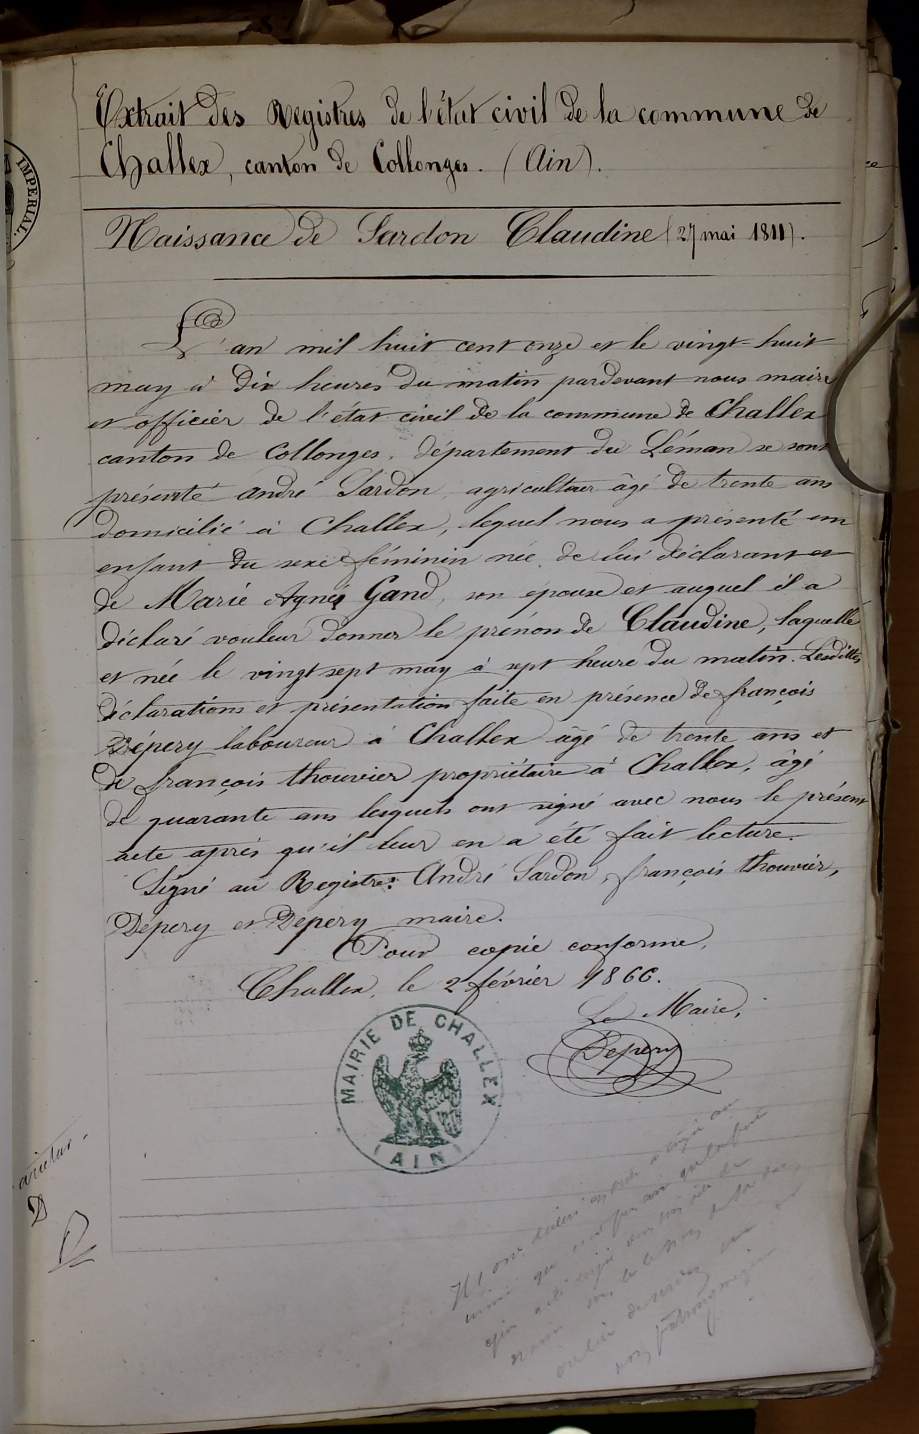 Extrait des Registres de l'état civil de la commune de
Challex, canton de Collonges. (Ain).
IMPERIAL.
Naissance de Sardon Claudine (27 mai 1811).
L'an mil huit cent onze et le vingt-huit
may à dix heures du matin pardevant nous maire
et officier de l'état civil de la commune de Challex
canton de Collonges, département du Léman se sont
présenté André Sardon, agriculteur âgé de trente ans
domicilié à Challex, lequel nous a présenté un
enfant du sexe féminin née de lui déclarant et
de Marie Agnès Gand, son épouse et auquel il a
déclaré vouloir donner le prénom de Claudine, laquelle
et née le vingt sept may à sept heure du matin. Lesdittes
déclarations et présentation faite en présence de françois
Dépery laboureur à Challex âgé de trente ans et
de françois thouvier propriétaire à Challex, âgé
de quarante ans lesquels ont signé avec nous le présent
acte après qu'il leur en a été fait lecture.
Signé au Registre: André Sardon, françois thouvier,
Dépery et Depery maire.
Pour copie conforme,
Challex, le 2 février 1866.
Le Maire,
Depery
MAIRIE DE CHALLEX
(AIN)
D